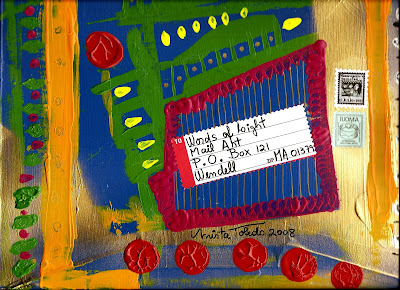 IUOMA
TO Words of Light
Mail Art
P.O. Box 121
Wendell ZIP MA 01379
Anista Toledo 2008